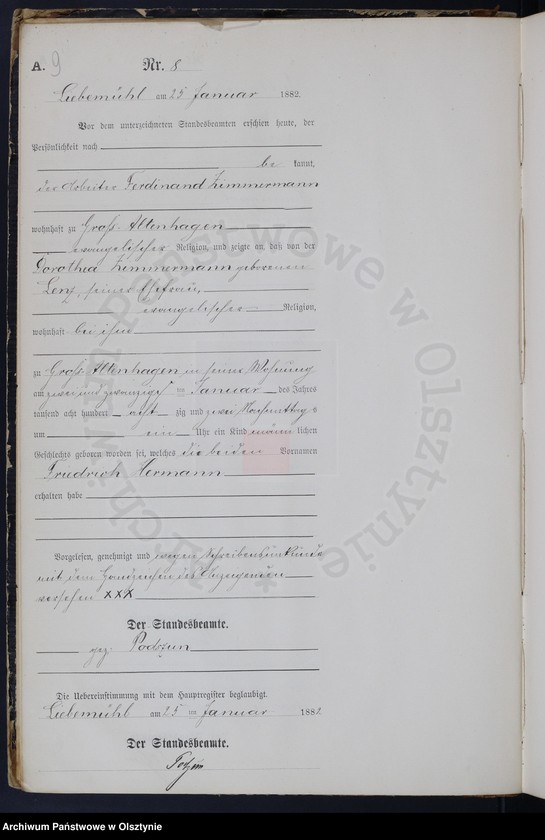 A. 9 Nr. 8
Liebemühl am 25 Januar 1882.
Vor dem unterzeichneten Standesbeamten erschien heute, der
Persönlichkeit nach
be kannt,
der Arbeiter Ferdinand Zimmermann
wohnhaft zu Groß Altenhagen
evangelischer Religion, und zeigte an, daß von der
Dorothea Zimmermann geborenen
Lenz, seiner Ehefrau,
evangelischer Religion,
wohnhaft bei ihm
zu Groß Altenhagen in seiner Wohnung
am zwei und zwanzigsten Januar des Jahres
tausend acht hundert acht zig und zwei Nachmittags
um ein Uhr ein Kind männ lichen
Geschlechts geboren worden sei, welches die beiden Vornamen
Friedrich Hermann
erhalten habe
Vorgelesen, genehmigt und wegen Schreibensunkunde
mit dem Handzeichen des Anzeigenden
versehen XXX
Der Standesbeamte.
gez. Podszun
Die Uebereinstimmung mit dem Hauptregister beglaubigt.
Liebemühl am 25 ten Januar 1882
Der Standesbeamte.
Archiwum Państwowe w Olsztynie